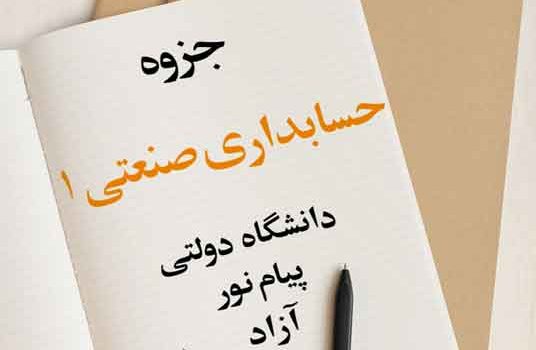 جزوه
حسابداری صنعتی ۱
دانشگاه دولتی
پیام نور
آزاد